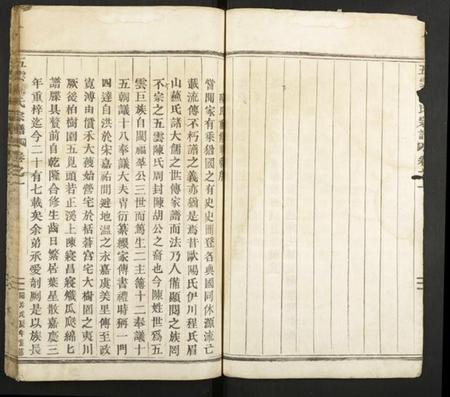 嘗聞家有乘猶國之有史史冊登各典國同休源流亡
載流傳不朽譜之義亦猶是焉昔歐陽氏伊川程氏眉
山蘇氏諸大儒之世傳家譜而法乃人備顯閥之族罔
不宗之五雲陳氏周封陳胡公之裔也今陳姓世爲五
雲巨族自閩福華公三世而篤生二主簿十二奉議十
五朝議十八奉議大夫胄衍纓家傳書禮時稱一門
四達自洪於宋嘉祐間避地溫之永嘉虞美里傳至政
寬溥由慣禾大菠始營宅於栝蒼宮宅大樹囦之夷川
厥後柏樹囦五覓頭若正溪上陳寢昌寢熾瓜瓞綿匕
譜牒具贅前自乾隆合修生齒日繁居葉星散嘉慶三
年重梓迄今二十有七載矣余弟承愛剞劂是以族長
五雲
氏宗譜
卷之一